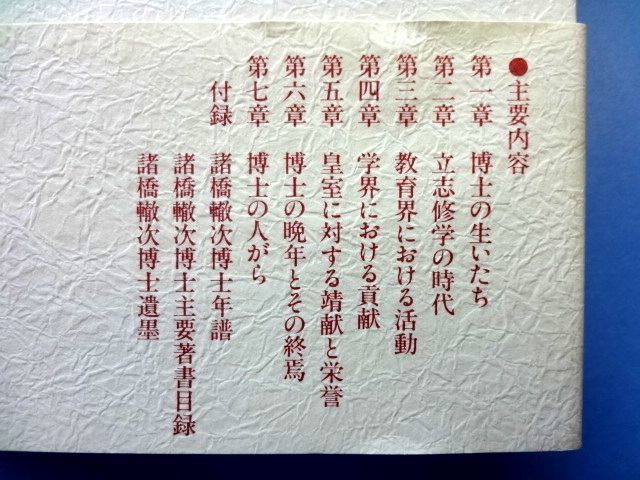 ●主要内容
第一章 博士の生いたち
第二章 立志修学の時代
第三章 教育界における活動
第四章 学界における貢献
第五章 皇室に対する靖献と栄誉
第六章 博士の晩年とその終焉
第七章 博士の人がら
付録 諸橋轍次博士年譜
諸橋轍次博士主要著書目録
諸橋轍次博士遺墨